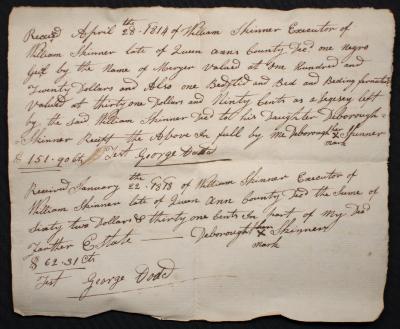 Received April 28th 1814 of William Skinner Executor of
William Skinner late of Queen Anns County Decd one Negro
Girl by the Name of Marger Valued at One Hundred and
Twenty Dollars and Also one Bedsted and Bed and Beding furniture
Valued at thirty one Dollars and Ninty Cents as a legesey left
by the said William Skinner Decd to his Daughter Deborough
Skinner Receipt the Above In full by me Deborough her x mark Skinner
$ 151.90 Cts Test George Dodd
Received January 22th of William Skinner Executor of
William Skinner late of Queen Ann County Decd the Sume of
Sixty two Dollars & thirty one Cents In part of My Decd
Farther Estate — Deborough her x mark Skinner
$ 62.31 Cts
Test George Dodd